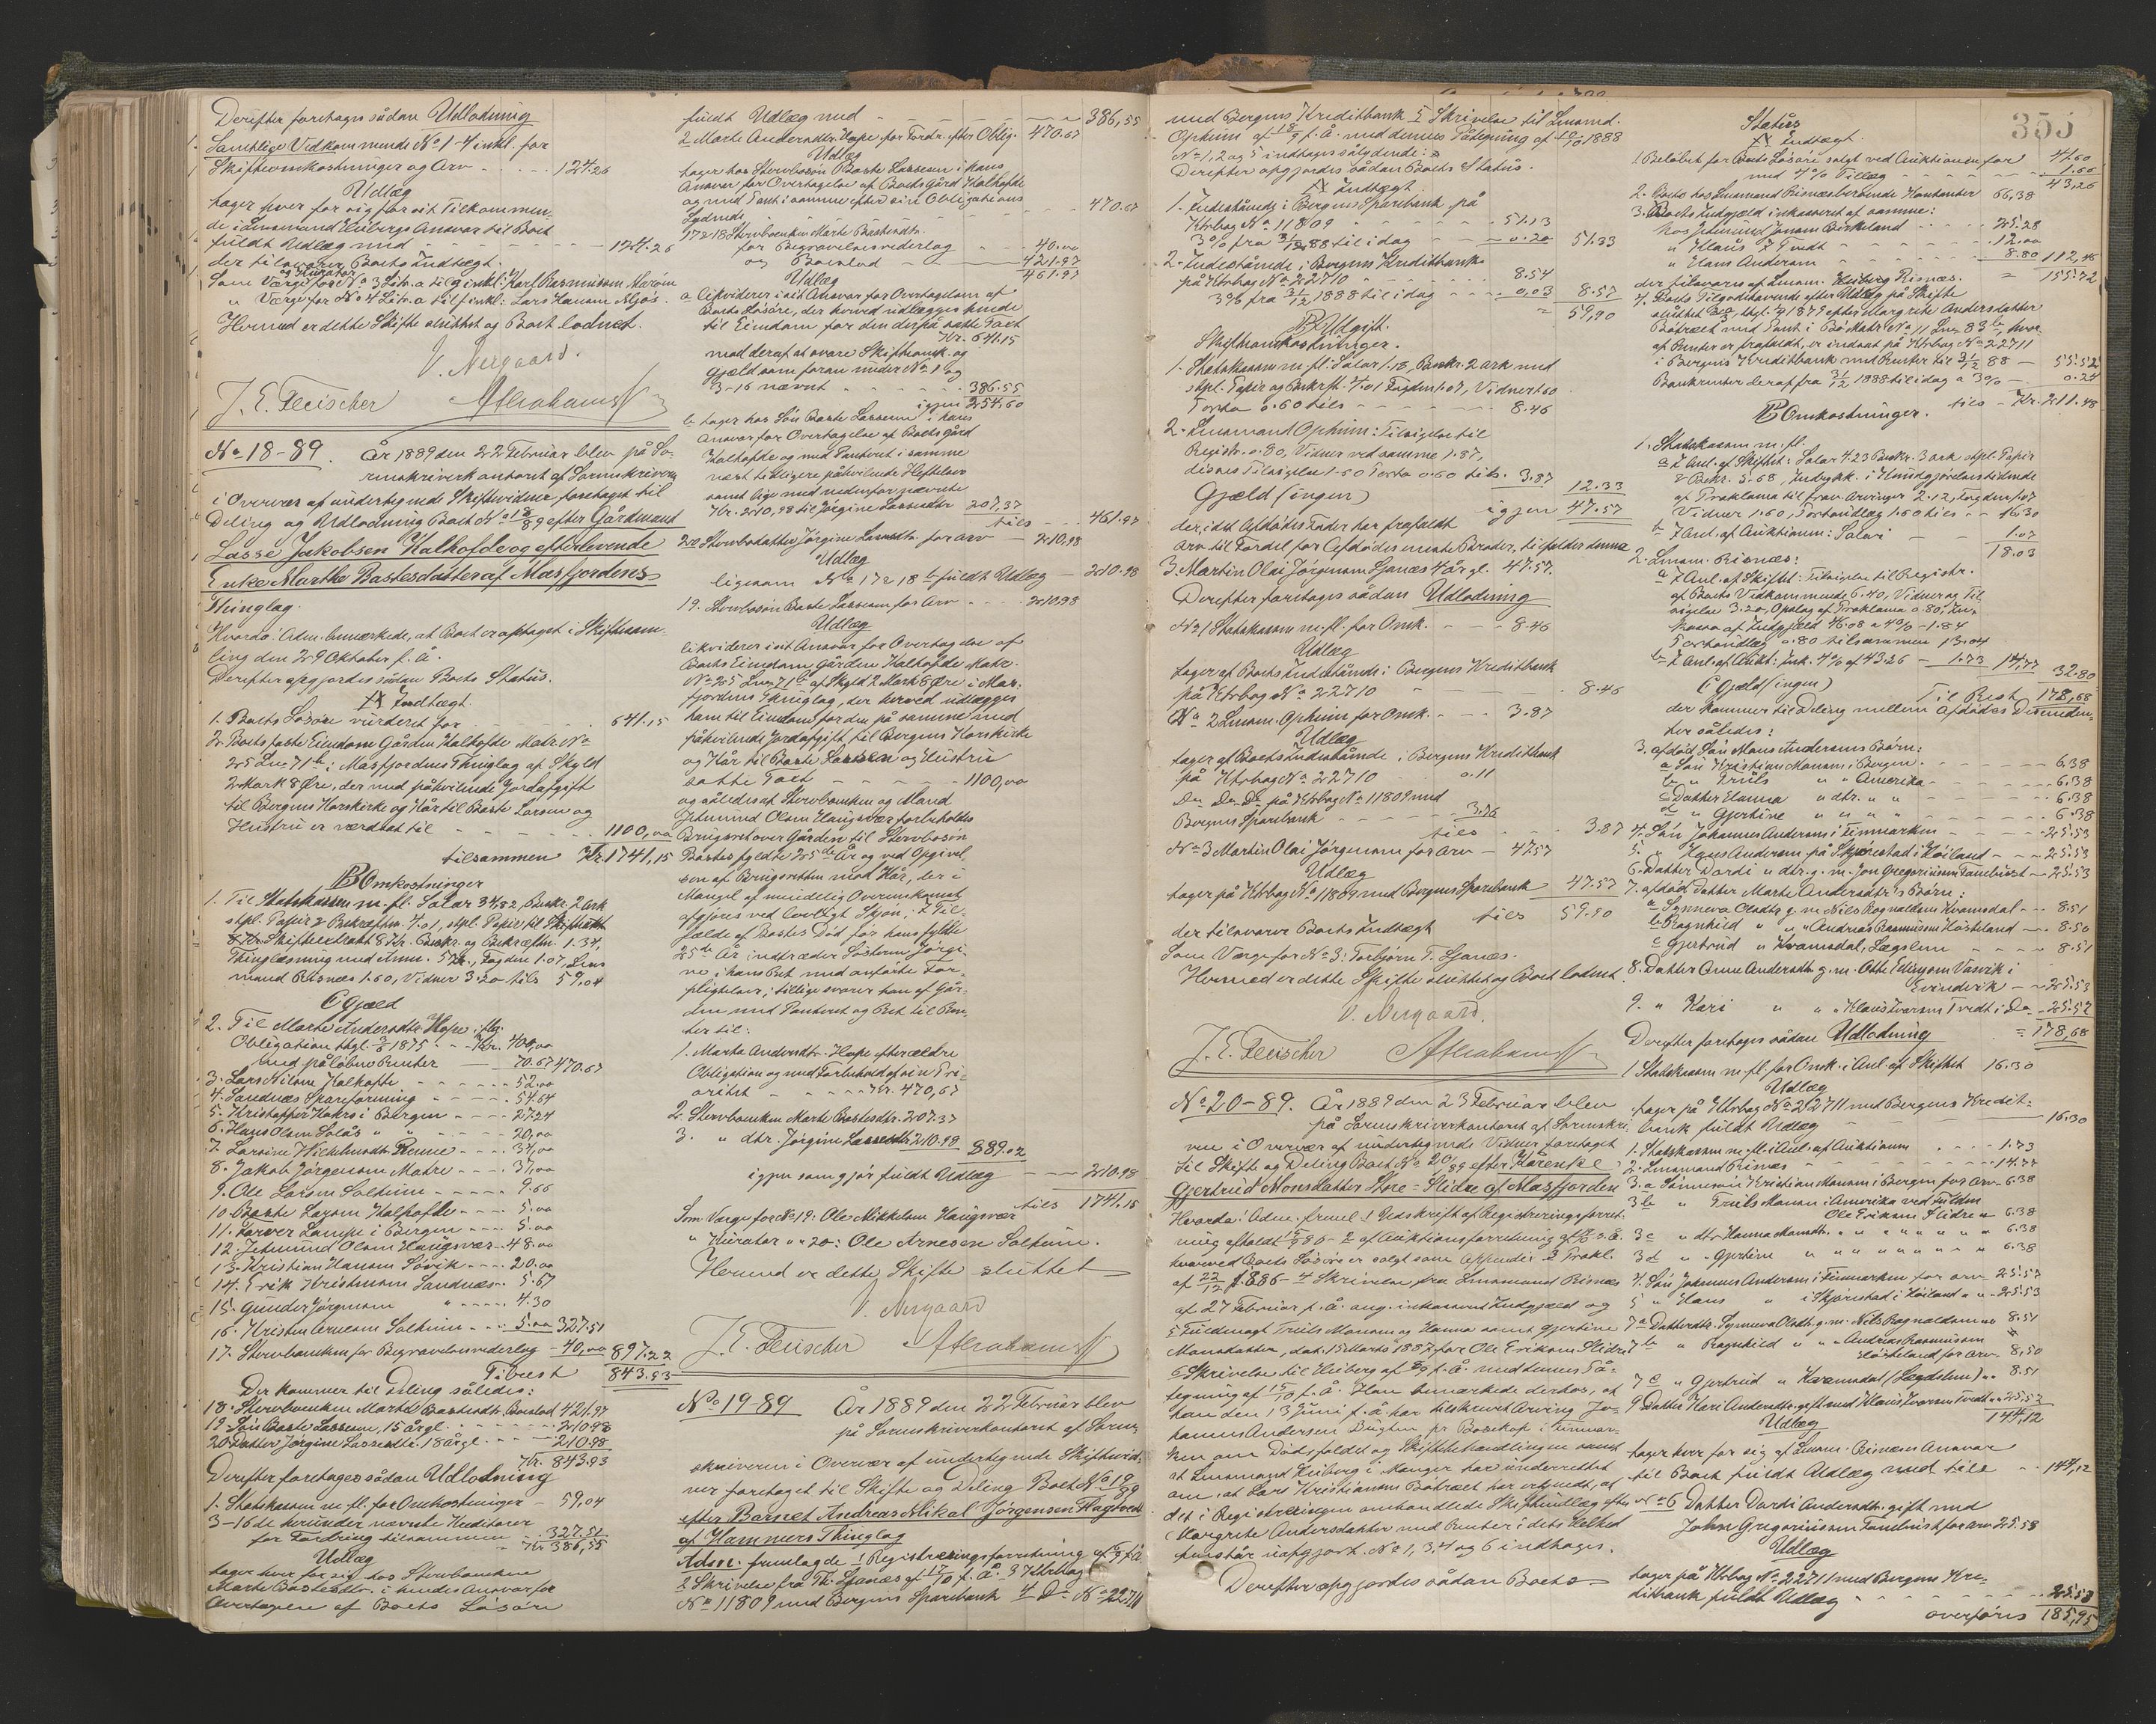 Derefter foretages sådan Udlodning
1. Samtlige Vedkommende No 1-4 inkl. for
Skifteomkostninger og Arv - - - - 124.26
Udlæg
tager hver for sig for sit Tilkommen-
de i Lensmand Heibergs Ansvar til Boet
fuldt Udlæg med - - - - 124.26
der tilsvarer Boets Indtægt.
og Kurator
Som Værge for No 3 Litr. a til g inkl: Karl Rasmussen
" Værge for No 4 Litr. a til f inkl: Lars Hansen Mjøs.
Hermed er dette Skifte sluttet og Boet lodnet.
V. Nergaard.
J. E. Fleischer
No 18-89. År 1889 den 22 Februar blev på So-
renskriverkontoret af Sorenskriveren
i Overvær af undertegnede Skiftevidner foretaget til
Deling og Udlodning Boet No 18/89 efter Gårdmand
Lasse Jakobsen Kalhofde og efterlevende
Enke Marthe Bastesdatter af Masfjordens
Thinglag.
Hvorda: Adm. bemærkede, at Boet er optaget i Skiftesam-
ling den 29 Oktober f. å.
Derefter opgjordes sådan Boets Status.
A Indtægt
1. Boets Løsøre vurderet for - - - 641.15
2. Boets faste Eiendom Gården Kalhofde Matr. No
25 Lno 71 b i Masfjordens Thinglag af Skyld
2 Mark 8 Øre, der med påhvilende Jordafgift
til Bergens Korskirke og Kår til Baste Larsen og
Hustru er værdsat til - - - 1100,00
tilsammen Kr. 1741,15
B Omkostninger
1. Til Statskassen m. fl. Salar 34.82, Beskr. 2 ark
stpl. Papir & Bekræftn. 4.01, stpl. Papir til Skifteextrakt
8 Kr. Skifteextrakt 8 Kr. Beskr. og Bekræftn. 1.34,
Thinglæsning med Anm. Tøgden 1.07 Lens
mand Risnæs 1.60, Vidner 3.20 tils 59,04
C Gjæld
2. Til Marte Andersdtr. Hope iflg.
Obligation thgl. 1875 - Kr. 400,00
med påløbne Renter 70.67 470.67
3. Lars Nilsen Kalhofde - - - 52.00
4. Sandnæs Spareforening - - - 54.64
5. Kristoffer i Bergen - - - 27.24
6. Hans Olsen Solås " " - - - 20,00
7. Larsine - - - 34,00
8. Jakob Jørgensen Matre - - - 37,00
9. Ole Larsen Soltuun - - - 9.66
10. Baste Larsen Kalhofde - - - 5.00
11. Farver Lampe i Bergen - - - 5.00
12. Jetmund Olsen Haugsvær - 48.00
13. Kristian Hansen Søvik - - - 20.00
14. Erik Kristensen Sandnæs - 5.67
15. Gunder Jørgensen " - - 4.30
16. Kristen Arnesen Soltuun - - 5.00 327.51
17. Stervboenken for Begravelsesvederlag - 40,00 897.22
Til rest 843.93
Der kommer til Deling således:
18. Stervboenken Marte Bastesdtr. Boeslod 421.97
19. Søn Baste Lassesen, 15 år gl. - - - 210.98
20. Datter Jørgine Lassesdtr. 18 år gl. - - 210.98
Kr. 843.93
Derefter foretages sådan Udlodning
1. Statskassen m. fl. for Omkostninger - 59,04
3-16 de herunder nævnte Kreditorer
for Fordring tilsammen 327.51
Kr. 386,55
Udlæg
tager hver for sig hos Stervboenken
Marte Bastesdtr. i hendes Ansvar for
Overtagelse af Boets Løsøre
fuldt Udlæg med - - - - 386,55
2 Marte Andersdtr. Hope for Fordr. efter Oblig. 470.67
Udlæg
tager hos Stervbosøn Baste Lassesen i hans
Ansvar for Overtagelse af Boets Gård Kalhofde
og med Pant i samme efter sin Obligations
Lydende - - - - 470.67
17 & 18 Stervboenken Marte Bastesdtr.
for Begravelsesvederlag - - 40.00
og Boeslod - - 421.97
461.97
Udlæg
a likviderer i sit Ansvar for Overtagelsen af
Boets Løsøre, der herved udlægges hende
til Eiendom for den derpå satte Taxt
Kr. 641.15
mod deraf at svare Skifteomk. og
Gjæld som foran under No 1 og
3-16 nævnt - - - - 386.55
igjen 254,60
b tager hos Søn Baste Lassesen i hans
Ansvar for Overtagelse af Boets Gård
Kalhofde og med Panteret i samme
næst tidligere påhvilende Heftelser
samt lige med nedenfor nævnte
Kr. 210,98 til Jørgine Lassesdtr 207,37
tils - - 461.97
20 Stervbodatter Jørgine Lassesdtr. for Arv - 210.98
Udlæg
ligesom No 17 & 18 b fuldt Udlæg - 210.98
19. Stervbosøn Baste Lassesen for Arv - - - 210.98
Udlæg
likviderer i sit Ansvar for Overtagelse af
Boets Eiendom Gården Kalhofde Matr.
No 25 Lno 71 b af Skyld 2 Mark 8 Øre i Mas-
fjordens Thinglag, der herved udlægges
ham til Eiendom for den på samme med
påhvilende Jordafgift til Bergens Korskirke
og Kår til Baste Larsen og Hustru
satte Taxt - - - - 1100,00
og således at Stervboenken og Mand
Jetmund Olsen Haugsvær forbeholdes
Brugsret over Gården til Stervbosøn
Bastes fyldte 25de År og ved Opgivel-
sen af Brugsretten mod Kår, der i
Mangel af mindelig Overenskomst
afgjøres ved lovligt Skjøn; i Til-
fælde af Bastes Død før hans fyldte
25de År indtræder Søsteren Jørgi-
ne i hans Ret med anførte For-
pligtelser; tillige svarer han af Går-
den med Panteret og Ret til Ren-
ter til:
1. Marta Andersdtr. Hope efter ældre
Obligation og med Forbehold af sin Pri-
oritet - - - Kr. 470,67
2. Stervboenken Marte Bastesdtr. 207.37
3. " dtr. Jørgine Lassesdtr 210.98 889.02
igjen som gjør fuldt Udlæg - - 210.98
tils 1741.15
Som Værge for No 19: Ole Mikkelsen Haugsvær
" Kurator " " 20: Ole Arnesen Soltuun.
Hermed er dette Skifte sluttet
V. Nergaard
J. E. Fleischer
No 19-89 År 1889 den 22 Februar blev
på Sorenskriverkontoret af Soren-
skriveren i Overvær af undertegnede Skiftevid-
ner foretaget til Skifte og Deling Boet No 19/89
efter Barnet Andreas Mikal Jørgensen
af Hammers Thinglag
Adm. fremlagde 1 Registreringsforretning
2 Skrivelse fra Th. Sjanæs af f. å. 3 Ktrbog
No 11809 med Bergens Sparebank 4 Do No 22710
med Bergens Kreditbank 5 Skrivelse til Lensmd.
Opheim af 18/9 f. å. med dennes Påtegning af 1888
No 1, 2 og 5 indtages sålydende:
Derefter opgjordes sådan Boets Status.
A Indtægt
1. Indestående i Bergens Sparebank på
Ktrbog No 11809 - - - - 51.13
3% fra 31/12 88 til i dag - - - 0.20 51.33
2. Indestående i Bergens Kreditbank
på Ktrbog No 22710 - - - 8.54
3% fra 31/12 1888 til i dag - - - 0,03 8.57
= 59,90
B Udgift.
Skifteomkostninger.
1. Statskassen m. fl: Salar 1.18, Beskr. 2 ark med
stpl. Papir og Bekrft. 4.01 Tøgden 1.07, Vidner 1.60
Porto 0.60 tils - - - 8.46
2. Lensmand Opheim: Tilsigelse til
Registr. 0.80, Vidner ved samme 1.87,
disses Tilsigelse 1.60 Porto 0.60 tils. 3.87 12.33
Gjæld (ingen) igjen 47.57
der, idet Afdødes Fader har frafaldt
Arv til Fordel for Afdødes eneste Broder, tilfalder denne
3. Martin Olai Jørgensen Sjanæs 4 år gl. 47.57.
Derefter foretages sådan Udlodning
No 1 Statskassen m. fl. for Omk. - - - 8.46
Udlæg
tager af Boets Indestående i Bergens Kreditbank
på Ktrbog No 22710 - - - 8.46
No 2 Lensm. Opheim for Omk. - - - 3.87
Udlæg
tager af Boets Indestående i Bergens Kreditbank
på Ktrbog No 22710 0.11
Do Do Do på Ktrbog No 11809 med
Bergens Sparebank - - - 3.76
tils - - 3.87
No 3 Martin Olai Jørgensen for Arv - 47.57
Udlæg
tager på Ktrbog No 11809 med Bergens Sparebank 47.57
tils 59.90
der tilsvarer Boets Indtægt
Som Værge for No 3: Torbjørn T. Sjanæs.
Hermed er dette Skifte sluttet og Boet lodnet.
V. Nergaard.
J. E. Fleischer
No 20-89. År 1889 den 23 Februar blev
på Sorenskriverkontoret af Sorenskri-
veren i Overvær af undertegnede Vidner foretaget
til Skifte og Deling Boet No 20/89 efter Kårenke
Gjertrud Monsdatter Sre-Slidre af Masfjorden
Hvorda: Adm. freml. 1 Udskrift af Registreringsforret-
ning afholdt 86 - 2 af Auktionsforretning
hvorved Boets Løsøre er solgt som 3 Prokl.
af 22/12 1886 - 4 Skrivelse fra Lensmand Risnæs
af 27 Februar f. å. ang. inkasseret Indgjæld og
5 Fuldmagt Truls Monsen og Hanna samt Gjertine
Monsdatter, dat. 15 Marts 1887 for Ole Eriksen Slidre
6 Skrivelse til Heiberg af f. å. med dennes På-
tegning af f. å. Han bemærkede derhos, at
han den 13 Juni f. å har tilskrevet Arving Jo-
hannes Andersen pr Bosekop i Finmar-
ken om Dødsfaldet og Skiftebehandlingen samt
at Lensmand Heiberg i Manger har underrettet
om, at Lars Kristiansen Bøtræet har erkjendt, at
det i Registreringen omhandlede Skifteudlæg efter
Margrete Andersdatter med Renter i dets Helhed
henstår uafgjort. No 1, 3, 4 og 6 indtages.
Derefter opgjordes sådan Boets
355
Status
A Indtægt.
1 Beløbet for Boets Løsøre solgt ved Auktionen for 41.60
med 4% Tillæg - - - 1.66
43,26
2. Boets hos Lensmand Risnæs beroende Kontanter 66,38
3. Boets Indgjæld inkasseret af samme:
hos Jetmund Jonsen Birkeland - - - 25.28
" Klaus I Tvedt - - - 12.00
" Hans Andersen - - - 8.80 112,46
= 155.72
der tilsvares af Lensm. Heiberg Risnæs.
4. Boets Tilgodehavende efter Udlæg på Skifte
sluttet 1875 efter Margrete Andersdatter
Bøtræet med Pant i Bø Matr. No 11 Lno 83 b, hvor-
af Renter er frafaldt, er indsat på Ktrbog No 22711
i Bergens Kreditbank med Renter til 31/12 88 - 55.52
Bankrenter deraf fra 31/12 1888 til i dag a 3% - 0.24
tils - Kr. 211.48
B Omkostninger.
1. Statskassen m. fl.
a I Anl. af Skiftet: Salar 4.23 Beskr. 3 ark stpl. Papir
& Bekr. 5.68, Indrykk. i Kundgjørelsestidende
af Proklama til frav. Arvinger 2.12, Tøgden 1.07
Vidner 1.60, Portoudlæg 1.60 tils - - 16.30
b I Anl. af Auktionen: Salar - - 1.73
18.03
2. Lensm. Risnæs:
a I Anl. af Skiftet: Tilsigelse til Registr.
af Boets Vedkommende 6.40, Vidner og Til-
sigelse 3.20, Opslag af Proklama 0.80, In-
kasso af Indgjæld 46.08 a 4% - 1.84
Portoudlæg 0.80 tilsammen 13.04
b I Anl. af Aukt: Ink. 4% af 43.26 - 1.73 14.77 32.80
C Gjæld (ingen) Til Rest 178,68
der kommer til Deling mellem Afdødes Descenden-
ter således:
3. afdød Søn Mons Andersens Børn:
a Søn Kristian Monsen i Bergen - - - 6.38
b " Truls " " Amerika - - - 6.38
c Datter Hanna " dtr. " " - - - 6.38
d " Gjertine " " " " - - - 6.38
4. Søn Johannes Andersen i Finmarken - - - 25.53
5. " Hans Andersen på Skjørestad i Høiland - - - 25.53
6. Datter Dordi " dtr. g. m. Jon Gregoriussen - 25.53
7. afdød Datter Marte Andersdatters Børn:
a Synneva Olsdtr. g. m. Nils Rognaldsen Kvamsdal - - - 8.51
b Ragnhild " " " Andreas Rasmussen - - - 8.50
c Gjertrud " Kvamsdal, Lægdslem - - - 8.51
8. Datter Anne Andersdtr. g. m. Otte Vasvik i
Evindvik - - 25.53
9. " Kari " " " Klaus Iversen Tvedt i Do - 25.52
= 178,68
Derefter foretages sådan Udlodning
1 Statskassen m. fl, for Omk. i Anl. af Skiftet 16.30
Udlæg
tager på Ktrbog No 22711 med Bergens Kredit-
bank fuldt Udlæg - - - 16.30
1. Statskassen m. fl. i Anl. af Auktionen - - - 1.73
2. Lensmand Risnæs - - - 14.77
3. a Sønnesøn Kristian Monsen i Bergen for Arv - 6.38
3 b " Truls Monsen i Amerika ved Fuldm.
Ole Eriksen Slidre " 6.38
3 c " dtr Hanna Monsdtr. " " " " " " 6.38
3 d " " Gjertine " " " " " " " 6.38
4. Søn Johannes Andersen i Finmarken for Arv - 25.53
5 " Hans " i Skjørestad i Høiland " " - 25.53
7 a Datterdtr. Synneva Olsdtr. g. m. Nils Rognaldsen " " 8.51
7 b " Ragnhild " " " Andreas Rasmussen
for Arv 8,50
7 c " Gjertrud " Kvamsdal (Lægdslem) " " 8.51
9 Datter Kari Andersdtr. gift med Klaus Iversen Tvedt " " 25.52
144,12
Udlæg
tager hver for sig af Lensm. Risnæs Ansvar
til Boet fuldt Udlæg med tils - - 144,12
No 6 Datter Dordi Andersdtr. gift med
John Gregoriussen for Arv 25.53
Udlæg
tager på Ktrbog No 22711 med Bergens Kre-
ditbank fuldt Udlæg - - - 25.53
overføres 185,95